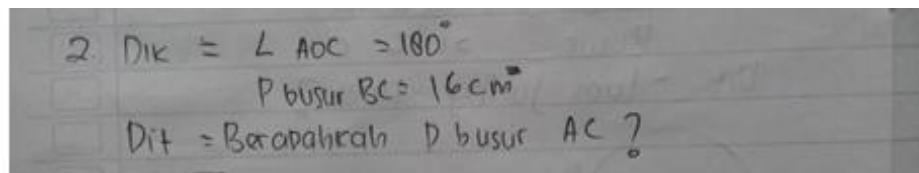 2. Dik = ∠ AOC = 180°
P busur BC = 16 cm
Dit = Berapahkah P busur AC ?